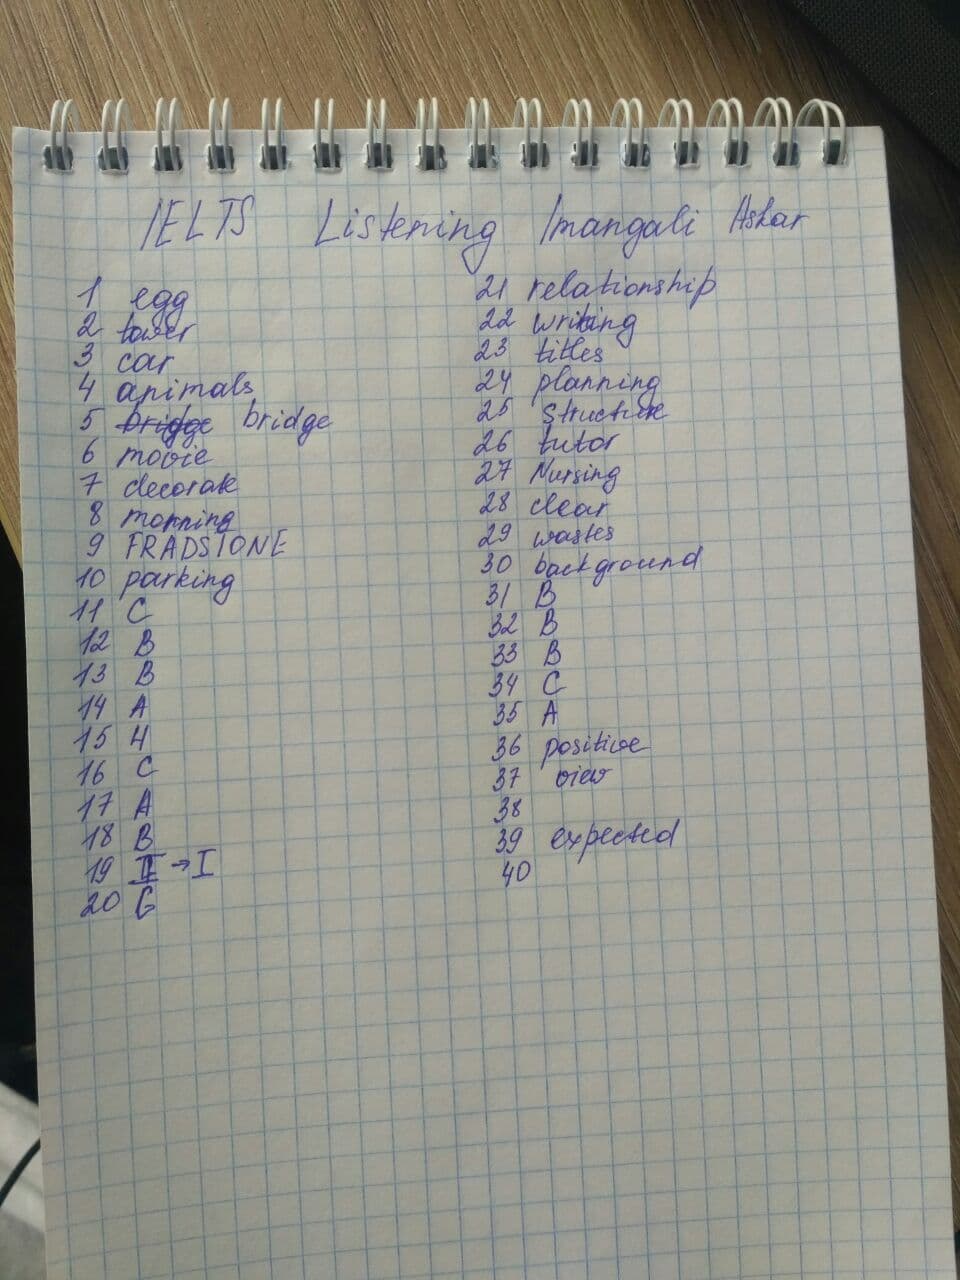 IELTS Listening Imangali Askar
1 egg
2 tower
3 car
4 animals
5 bridge bridge
6 movie
7 decorate
8 morning
9 FRADSTONE
10 parking
11 C
12 B
13 B
14 A
15 H
16 C
17 A
18 B
19 → I
20 G
21 relationship
22 writing
23 titles
24 planning
25 structure
26 tutor
27 Nursing
28 clear
29 wastes
30 background
31 B
32 B
33 B
34 C
35 A
36 positive
37 view
38
39 expected
40